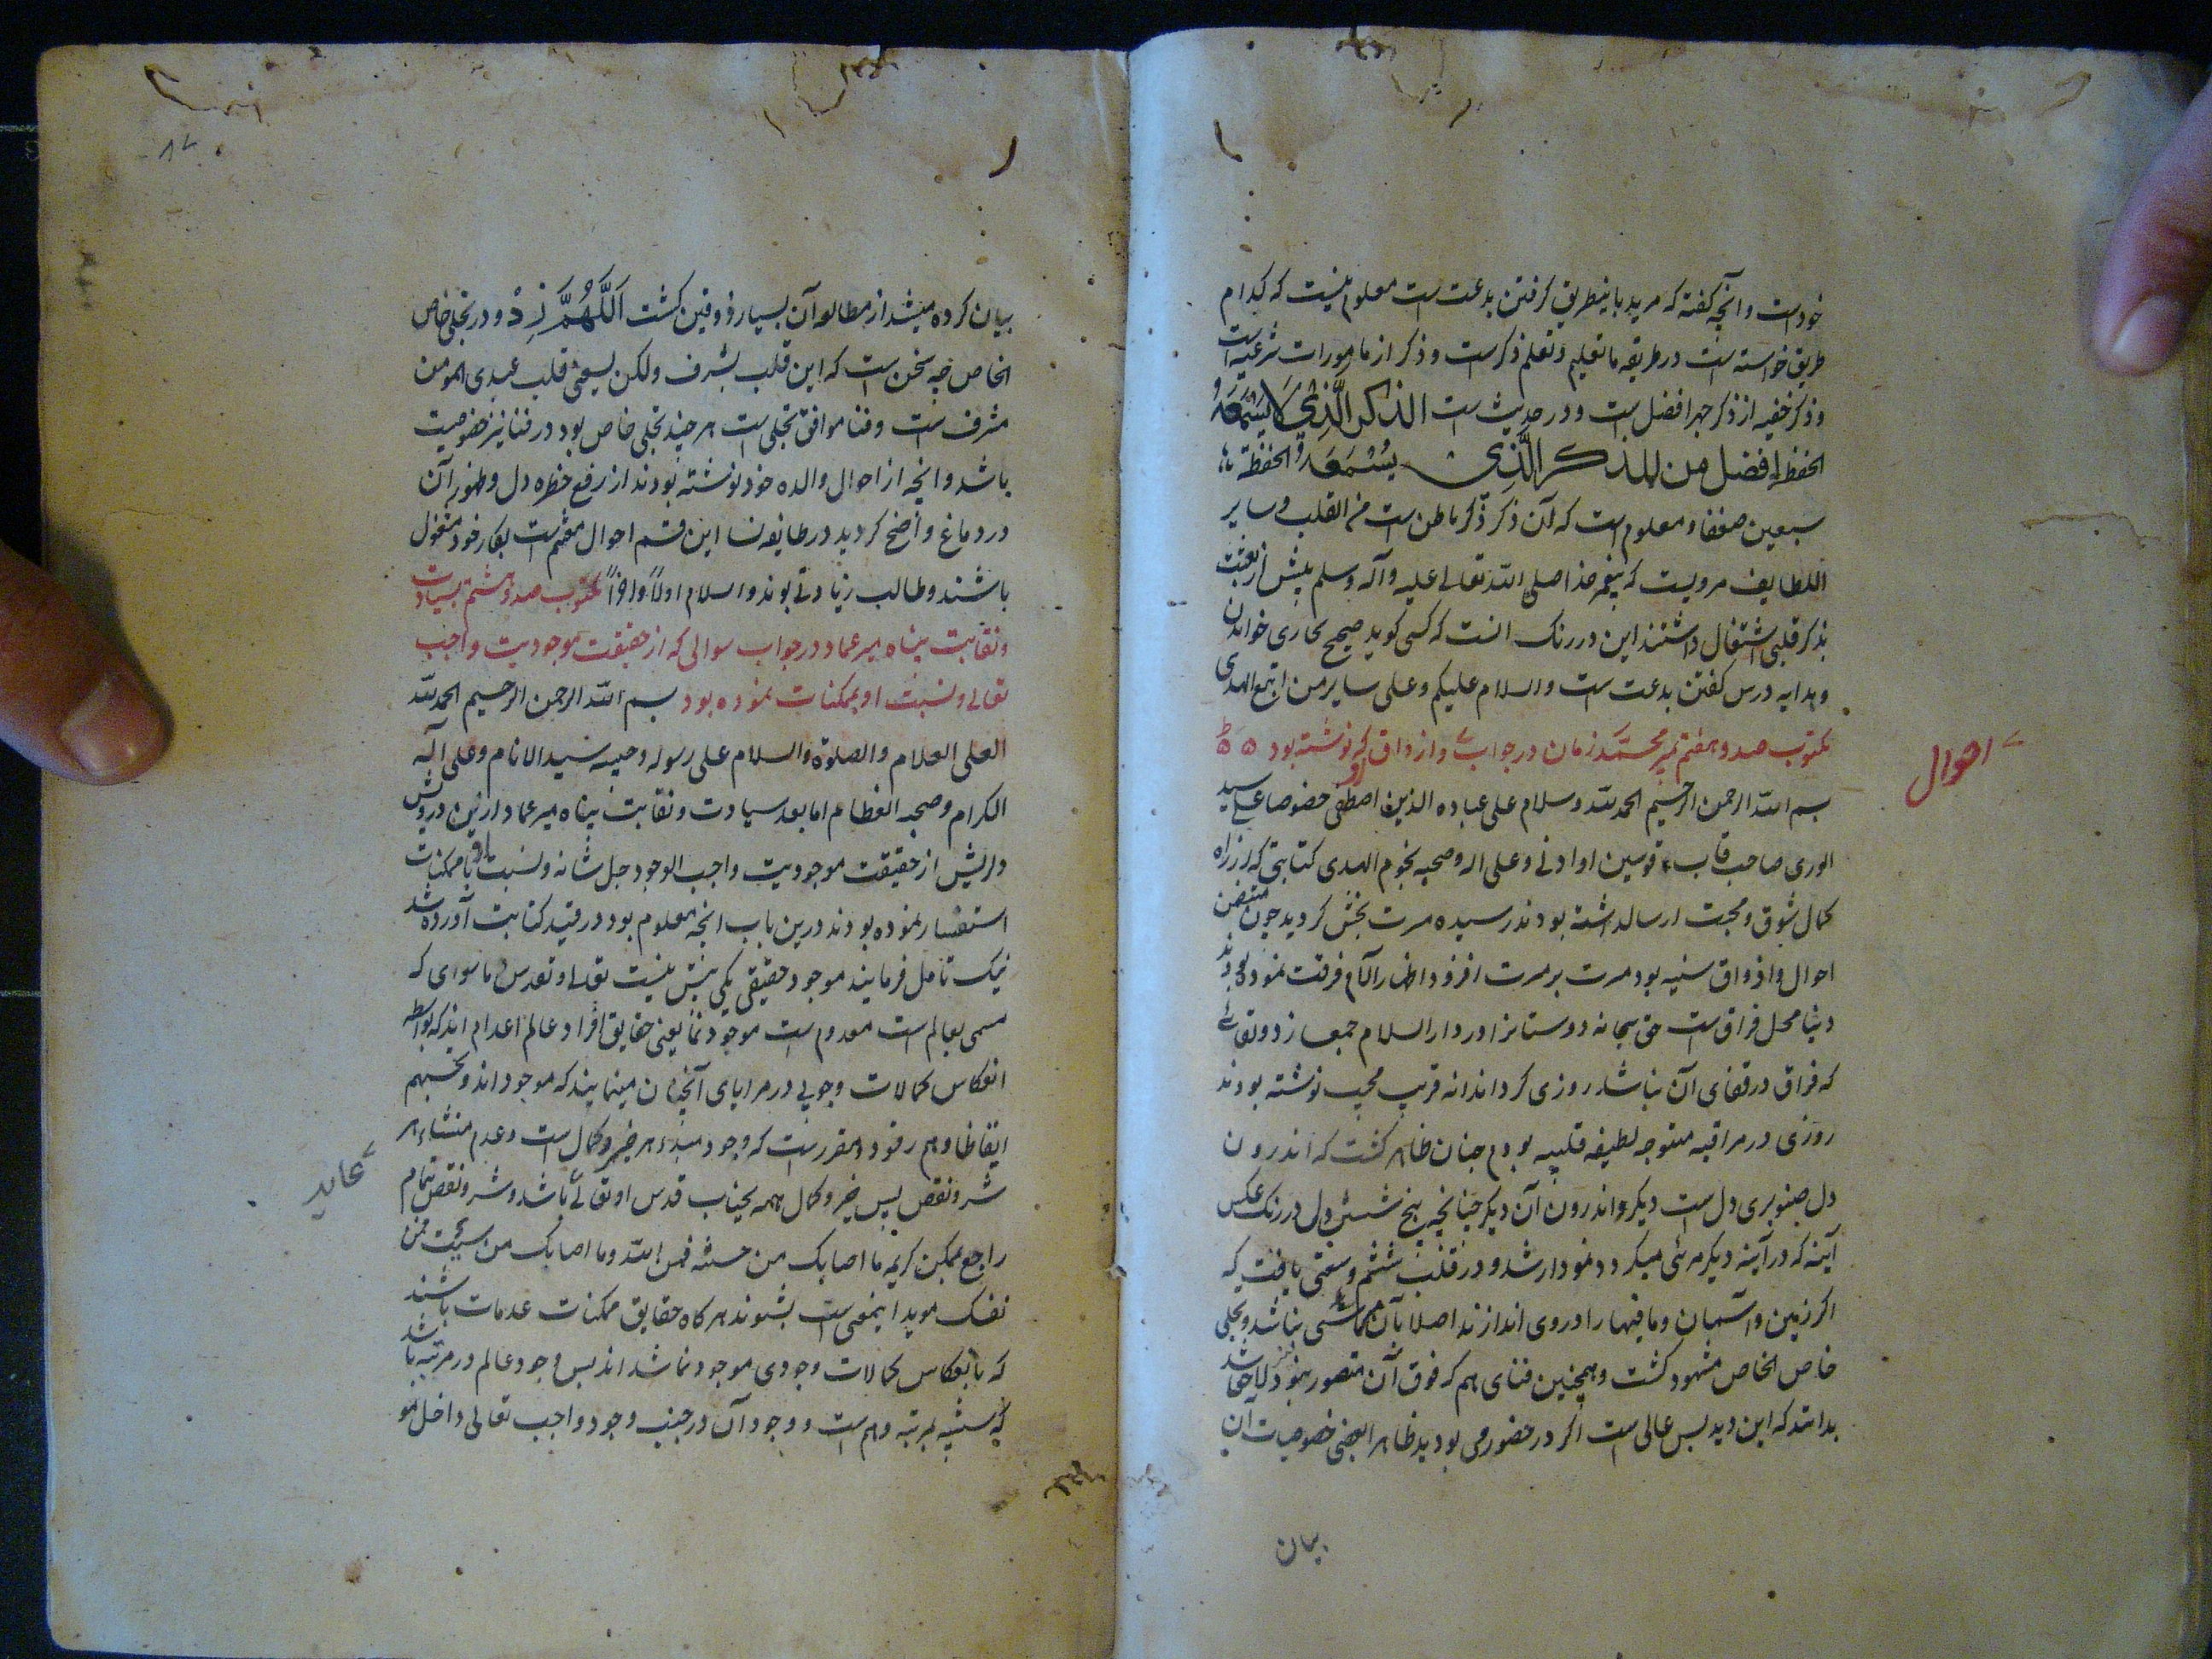 خود است و آنچه گفته که مرید باینطریق گرفتن بدعت است معلوم نیست که کدام
طریق خواسته است در طریقه ما تعلیم و تعلم ذکر ست و ذکر از مامورات شرعیه است
و ذکر خفیه از ذکر جهر افضل ست و در حدیث ست الذکر الَّذِیْ لَا یَسْمَعَهُ
الحفظة افضل من الذکر الَّذِی یَسْمَعَهُ الحفظة
سبعین ضعفا و معلوم ست که آن ذکر ذکر باطن ست من القلب و سایر
اللطایف مرویست که پیغمبر خدا صلی الله تعالی علیه و آله و سلم پیش از بعثت
بذکر قلبی اشتغال داشتند این در رنک انست که کسی کوید صحیح بخاری خواندن
و هدایه درس کفتن بدعت ست و السلام علیکم و علی سایر من اتبع الهدی
مکتوب صد و هفتم بمیر محمد زمان در جواب احوال و اذواق که نوشته بود
بسم الله الرحمن الرحیم الحمد لله و سلام علی عباده الذین اصطفی خصوصا علی سید
الوری صاحب قاب قوسین او ادنی و علی اله و صحبه نجوم الهدی کتابتی که از راه
کمال شوق و محبت ارسال داشته بودند رسیده مسرت بخش کردید چون متضمن
احوال و اذواق سنیه بود مسرت بر مسرت افزود اظهار آلام فرقت نموده بودند
دنیا محل فراق ست حق سبحانه دوستانرا در دار السلام جمع سازد و لقائی
که فراق در قفای آن نباشد روزی کرداند انه قریب مجیب نوشته بودند
روزی در مراقبه متوجه لطیفه قلبیه بودم چنان ظاهر کشت که اندرون
دل صنوبری دل ست دیکر و اندرون آن دیکر چنانچه پنج شش دل در رنک عکس
آینه که در آینه دیکر مرئی میکردد نمودار شد و در قلب ششم وسعتی یافت که
اکر زمین و آسمان و ما فیها را در وی اندازند اصلا بآن مماس نباشد و تجلی
خاص الخاص مشهود کشت و همچنین فنای هم که فوق آن متصور نبود
بدانند که این دید بس عالی است اکر در حضور می بودید ظاهرا بعضی خصوصیات آن
بیان
احوال
بیان کرده میشد از مطالعه آن بسیار ذوقین کشت اَللّٰهُمَّ زِدْ و در تجلی خاص
الخاص چه سخن ست که این قلب بشرف ولکن یسعنی قلب عبدی المومن
مشرف ست و فنا موافق تجلی است هر چند تجلی خاص بود در فنا نیز خصوصیت
باشد و انچه از احوال والده خود نوشته بودند از رفع خطره دل و ظهور آن
در دماغ واضح کردید در طایفه نسا این قسم احوال مغتنم ست بکار خود مشغول
باشند و طالب زیادتی بوند و السلام اولاً و اخراً مکتوب صد و هشتم بسیادت
و نقابت پناه میر عماد در جواب سوالی که از حقیقت موجودیت واجب
تعالی و نسبت او بممکنات نموده بود بسم الله الرحمن الرحیم الحمد لله
العلی العلام و الصلوة و السلام علی رسوله و حبیبه سید الانام و علی آله
الکرام و صحبه العظام اما بعد سیادت و نقابت پناه میر عماد ازین درویش
دلریش از حقیقت موجودیت واجب الوجود جل شانه و نسبت او با ممکنات
استفسار نموده بودند درین باب انچه معلوم بود در قید کتابت آورده شد
نیک تامل فرمایند موجود حقیقی یکی بیش نیست تعالی و تقدس ما سوای که
مسمی بعالم است معدوم ست موجود نما یعنی حقایق افراد عالم اعدام اند که بواسطه
انعکاس کمالات وجوبی در مرایای آنچنان مینمایند که موجود اند و تحسبهم
ایقاظا و هم رقود مقرر ست که وجود مبداء هر خیر و کمال ست و عدم منشاء هر
شر و نقص پس خیر و کمال همه بجناب قدس او تعالی عاید باشد و شر و نقص بتمام
راجع بممکن کریمه ما اصابک من حسنة فمن الله و ما اصابک من سیئة فمن
نفسک موید اینمعنی است بشنوند هرکاه حقایق ممکنات عدمات باشند
که بانعکاس کمالات وجودی موجود نما شد اند پس وجود عالم در مرتبه باشد
که شبیه بمرتبه وهم است و وجود آن در جنب وجود واجب تعالی داخل نمو
عاید